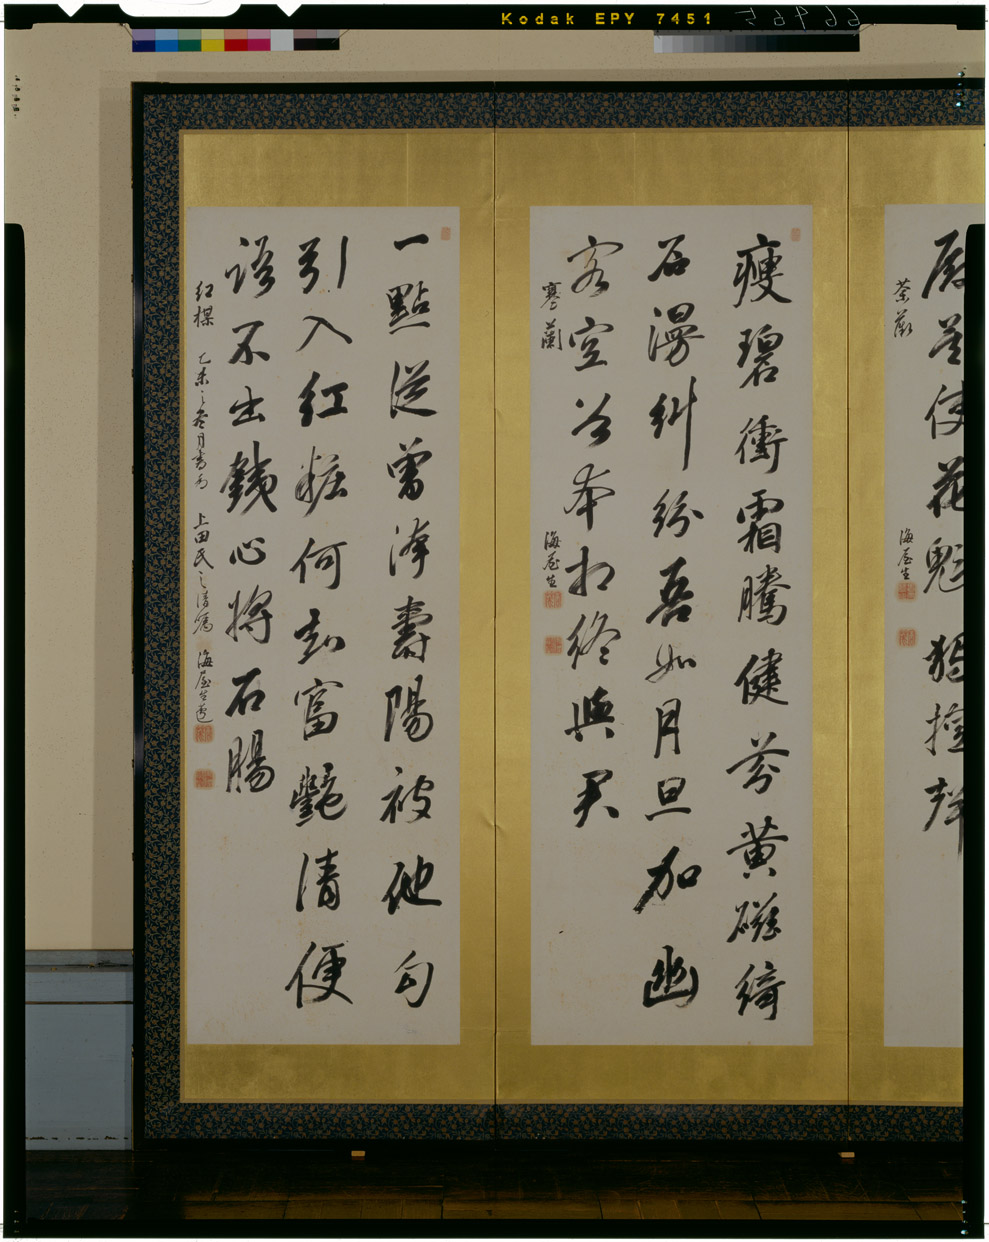 Kodak EPY 7451
66965
使花魁猶擅
茶蘼
海屋生
瘦碧衝霜騰健芬黃磁綺
石漫糾紛吾如月旦加幽
客空谷本相終與君
寒蘭
海屋生
一點從曾滓壽陽被他勾
引入紅粧何知富艷清便
語不出銕心將石腸
紅楳 乙未之冬月書為 上田氏之清屬 海屋生